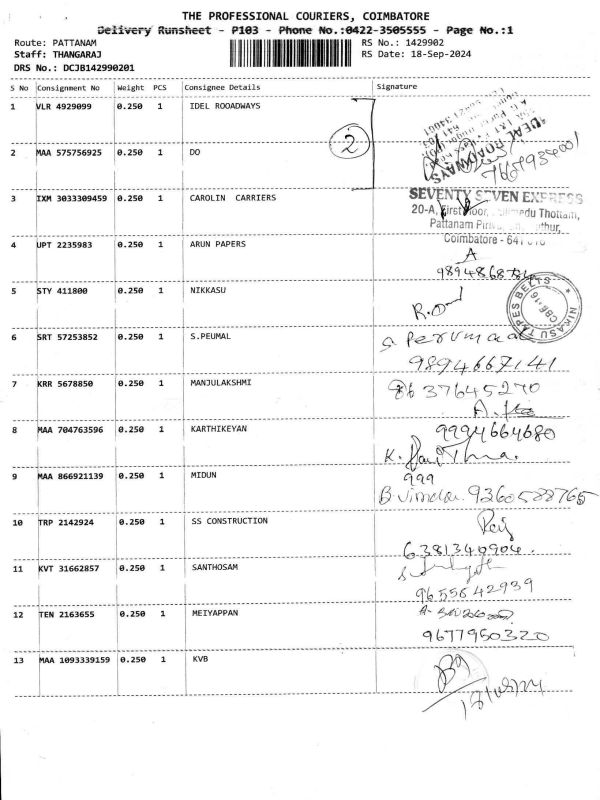 THE PROFESSIONAL COURIERS, COIMBATORE
Delivery Runsheet - P103 - Phone No.:0422-3505555 - Page No.:1
Route: PATTANAM
RS No.: 1429902
Staff: THANGARAJ
RS Date: 18-Sep-2024
DRS No.: DCJB142990201
S No Consignment No Weight PCS Consignee Details Signature
1 VLR 4929099 0.250 1 IDEL ROOADWAYS
2 MAA 575756925 0.250 1 DO
2
IDEAL ROADWAYS
3 IXM 3033309459 0.250 1 CAROLIN CARRIERS
SEVENTY SEVEN EXPRESS
20-A, First Floor, Thottam,
Pattanam
Coimbatore - 641
4 UPT 2235983 0.250 1 ARUN PAPERS
5 STY 411800 0.250 1 NIKKASU
NIKASU TAPES BELTS
CBE-16
6 SRT 57253852 0.250 1 S.PEUMAL
S. Perumaal
9894667141
7 KRR 5678850 0.250 1 MANJULAKSHMI
8637645270
8 MAA 704763596 0.250 1 KARTHIKEYAN
9994664680
9 MAA 866921139 0.250 1 MIDUN
999
B. Vimala. 9360588765
10 TRP 2142924 0.250 1 SS CONSTRUCTION
6381340904.
11 KVT 31662857 0.250 1 SANTHOSAM
9655642939
12 TEN 2163655 0.250 1 MEIYAPPAN
9677950320
13 MAA 1093339159 0.250 1 KVB